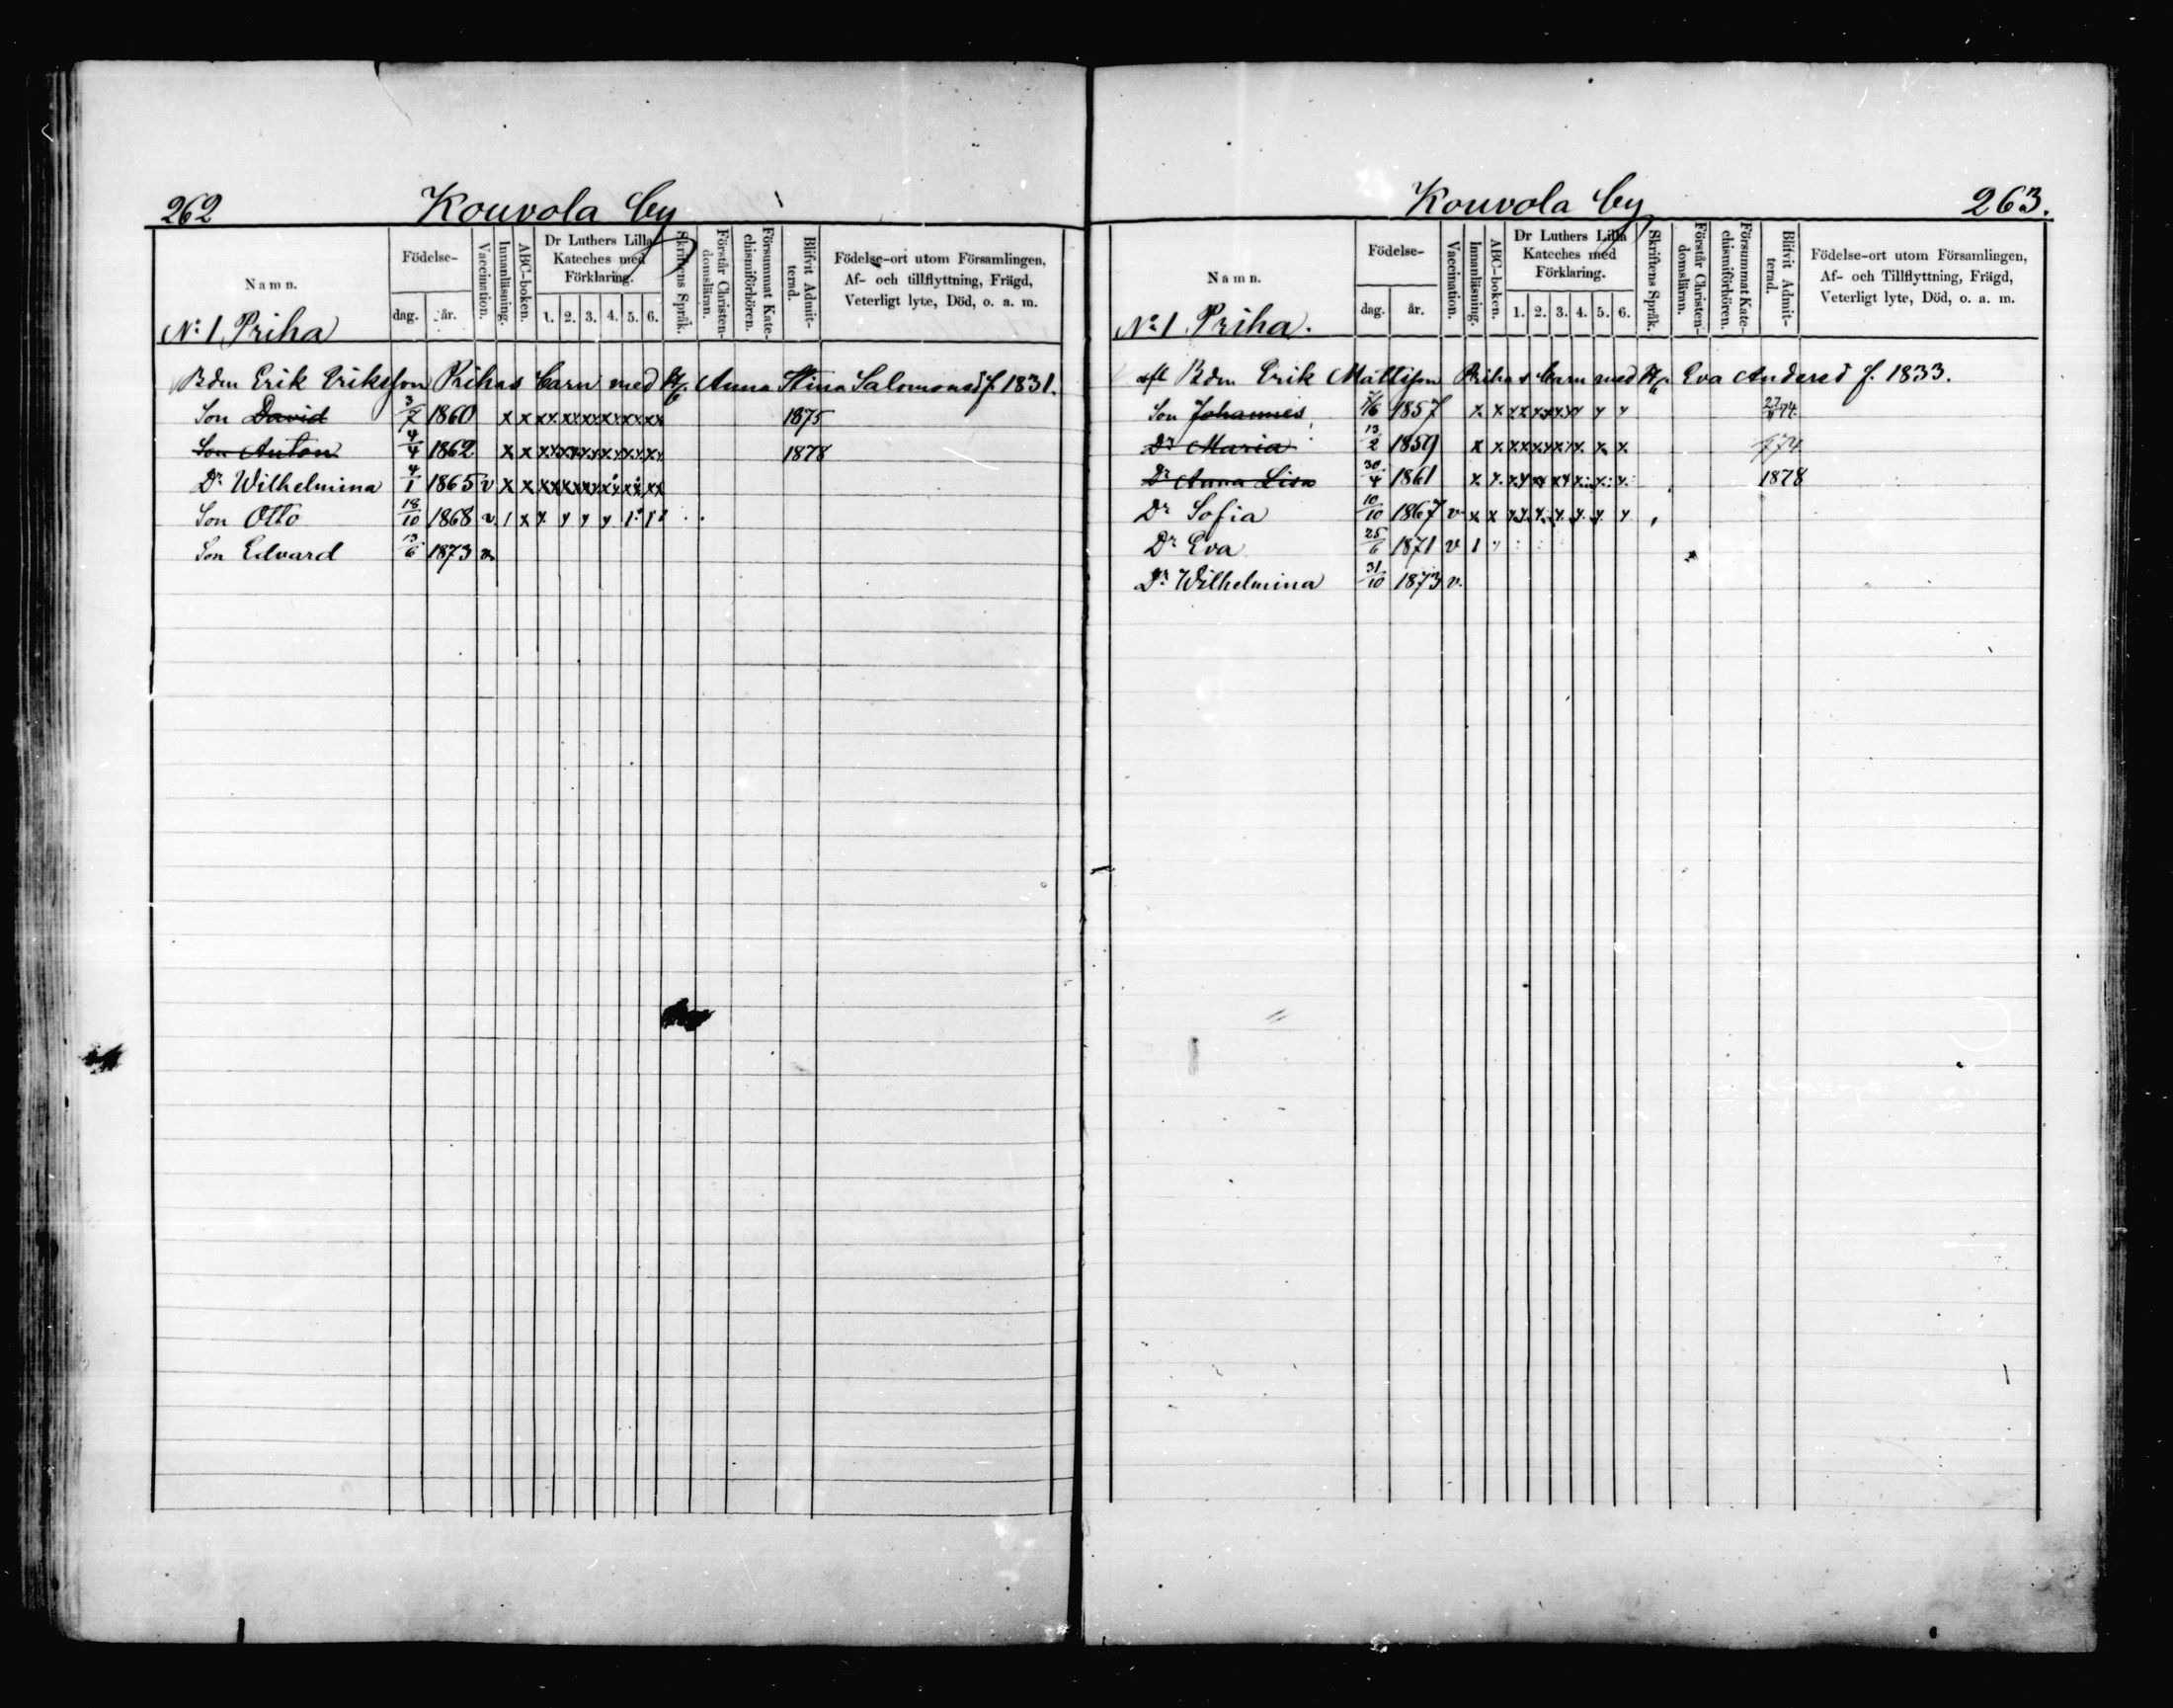 262 Kouvola by
Namn. Födelse- dag. år. Vaccination. Innanläsning. ABC-boken. Dr Luthers Lilla Kateches med Förklaring. 1. 2. 3. 4. 5. 6. Skriftens Språk. Förstår Christendomsläran. Försummat Katechismiförhören. Blifvit Admitterad. Födelse-ort utom Församlingen, Af- och tillflyttning, Frägd, Veterligt lyte, Död, o. a. m.
No 1 Priha
Bdn Erik Eriksson Prihas barn med Anna Stina Salomonsd f. 1831.
Son David 3/7 1860 x x x x x x x x x x x x x x 1875
Son Anton 4/4 1862 x x x x x x x x x x x x x x 1878
Dr Wilhelmina 4/1 1865 v x x x x x x x x x x x x x x
Son Otto 18/10 1868 v 1 x x
Son Edvard 13/6 1873 v
Kouvola by 263.
Namn. Födelse- dag. år. Vaccination. Innanläsning. ABC-boken. Dr Luthers Lilla Kateches med Förklaring. 1. 2. 3. 4. 5. 6. Skriftens Språk. Förstår Christendomsläran. Försummat Katechismiförhören. Blifvit Admitterad. Födelse-ort utom Församlingen, Af- och Tillflyttning, Frägd, Veterligt lyte, Död, o. a. m.
No 1 Priha.
Bdn Erik Mattsson Prihas barn med Eva Andersd f. 1833.
Son Johannes 1857 x x x x x x x x x x
Dr Maria 13/2 1859 x x x x x x x x x x
Dr Anna Lisa 30/4 1861 x x x x x x x x x x 1878
Dr Sofia 10/10 1867 v x x x x x x x x
Dr Eva 25/6 1871 v 1
Dr Wilhelmina 31/10 1873 v.